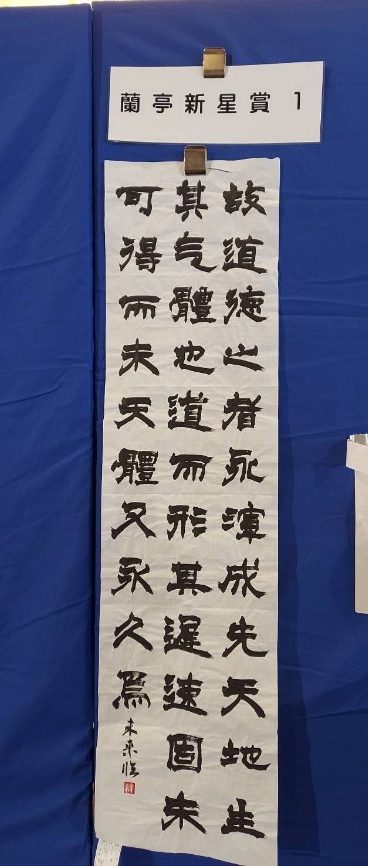 蘭亭新星賞 1
故道德之者永渾成先天地生
其气體也道而形其遲速固未
可得而未天體又永久爲
未来臨